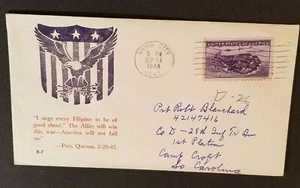 SIOUX CITY
SEP 27
1944
IOWA
UNITED STATES OF AMERICA
D-26
Pvt Robt Blanchard
42147416
Co D - 28th Inf Tr Bn
1st Platoon
Camp Croft
So Carolina
"I urge every Filipino to be
of good cheer. The Allies will win
this war—America will not fail
us."
—Pres. Quezon, 2-28-42.
B-7